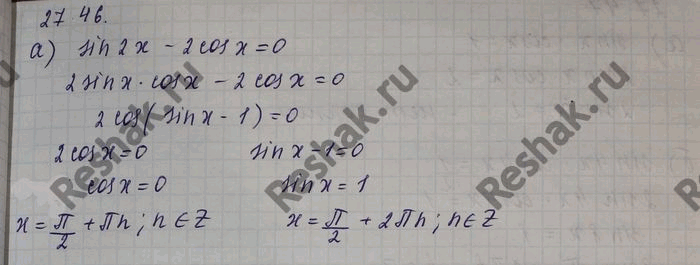 27.46.
а) sin2x - 2cosx = 0
2sinx · cosx - 2cosx = 0
2cos(sinx - 1) = 0
2cosx = 0 sinx - 1 = 0
cosx = 0 sinx = 1
x = π/2 + πn; n ∈ Z x = π/2 + 2πn; n ∈ Z
Reshak.ru
Reshak.ru
Reshak.ru